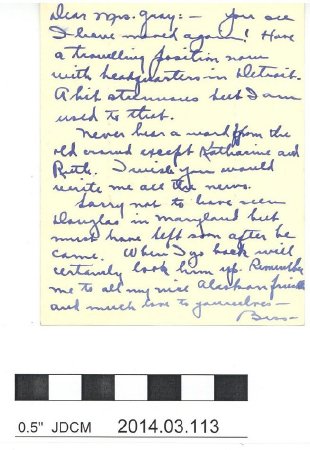 Dear Mrs. Gray: — You see
I have moved again! Have
a travelling position now
with headquarters in Detroit.
A bit strenuous but I am
used to that.
Never hear a word from the
old crowd except Katharine and
Ruth. I wish you would
write me all the news.
Sorry not to have seen
Douglas in Maryland but
must have left soon after he
came. When I go back will
certainly look him up. Remember
me to all my nice Alaskan friends
and much love to yourselves —
Bess —
0.5" JDCM 2014.03.113